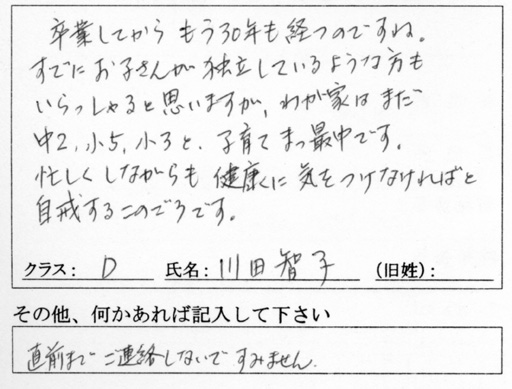 卒業してから もう30年も経つのですね。
すでにお子さんが独立しているような方も
いらっしゃると思いますが、わが家はまだ
中2、小5、小3と、子育てまっ最中です。
忙しくしながらも健康に気をつけなければと
自戒するこのごろです。
クラス： D 氏名： 川田智子 （旧姓）：
その他、何かあれば記入して下さい
直前までご連絡しないですみません。